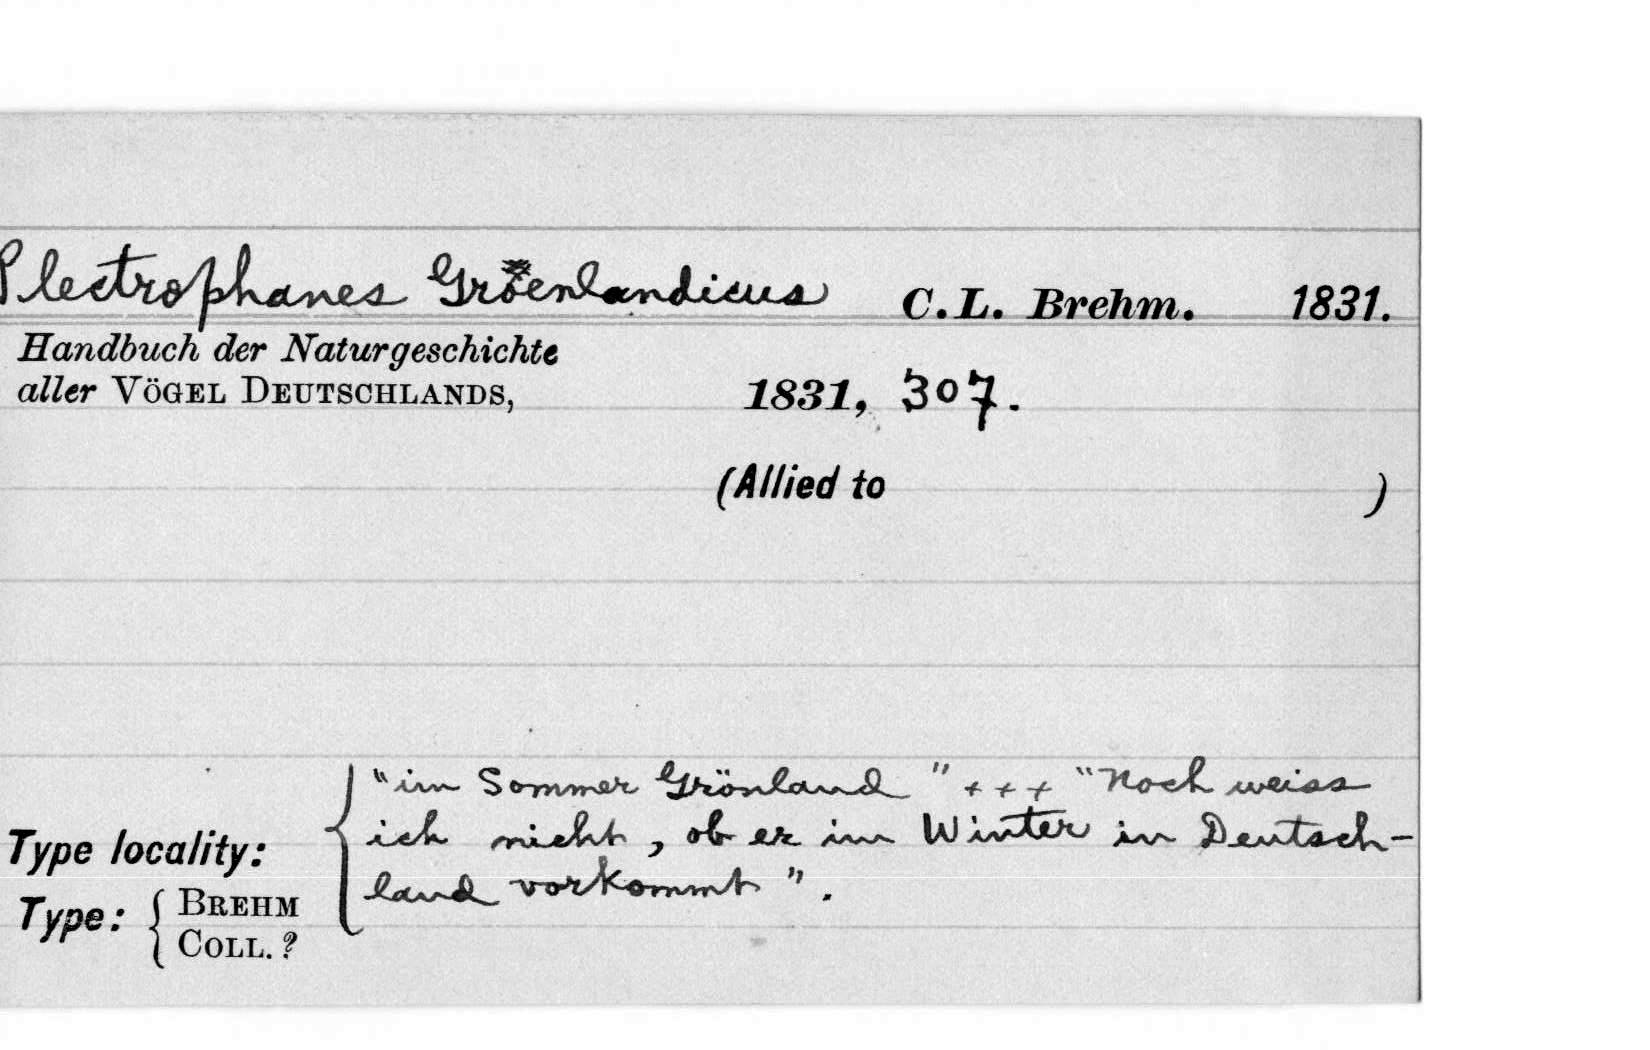 Plectrophanes Groenlandicus C.L. Brehm. 1831.
Handbuch der Naturgeschichte
aller VÖGEL DEUTSCHLANDS, 1831, 307.
(Allied to )
"im Sommer Grönland" +++ "Noch weiss
Type locality: ich nicht, ob er im Winter in Deutsch-
land vorkommt".
Type: { BREHM
COLL.?